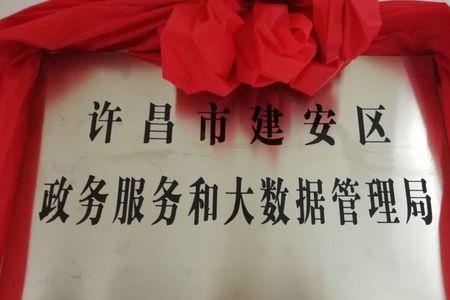 许昌市建安区
政务服务和大数据管理局